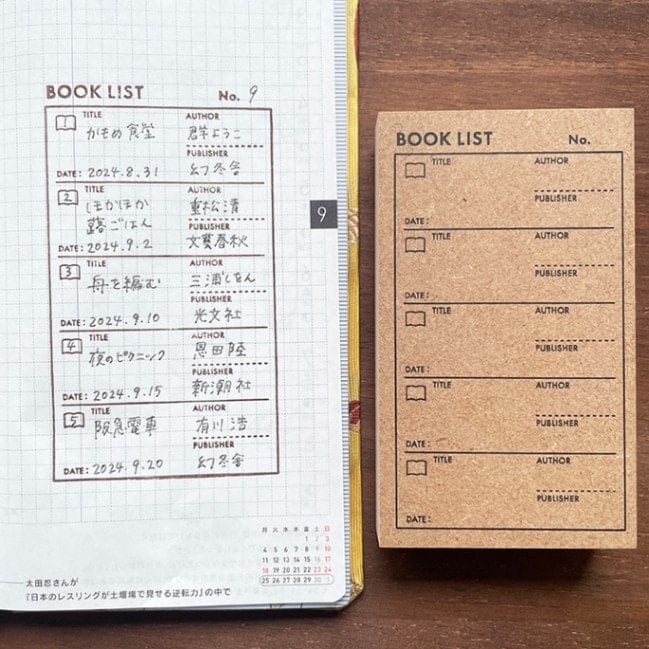 BOOK LIST
No. 9
1 TITLE AUTHOR
かもめ食堂 群ようこ
PUBLISHER
DATE: 2024.8.31 幻冬舎
2 TITLE AUTHOR
ほかほか 重松清
ごはん PUBLISHER
DATE: 2024.9.2 文藝春秋
3 TITLE AUTHOR
舟を編む 三浦しをん
PUBLISHER
DATE: 2024.9.10 光文社
4 TITLE AUTHOR
夜のピクニック 恩田陸
PUBLISHER
DATE: 2024.9.15 新潮社
5 TITLE AUTHOR
阪急電車 有川浩
PUBLISHER
DATE: 2024.9.20 幻冬舎
9
月 火 水 木 金 土 日
1 2 3
4 5 6 7 8 9 10
11 12 13 14 15 16 17
18 19 20 21 22 23 24
25 26 27 28 29 30 1
太田忍さんが
『日本のレスリングが土壇場で見せる逆転力』の中で
BOOK LIST No.
TITLE AUTHOR
PUBLISHER
DATE:
TITLE AUTHOR
PUBLISHER
DATE:
TITLE AUTHOR
PUBLISHER
DATE:
TITLE AUTHOR
PUBLISHER
DATE:
TITLE AUTHOR
PUBLISHER
DATE: